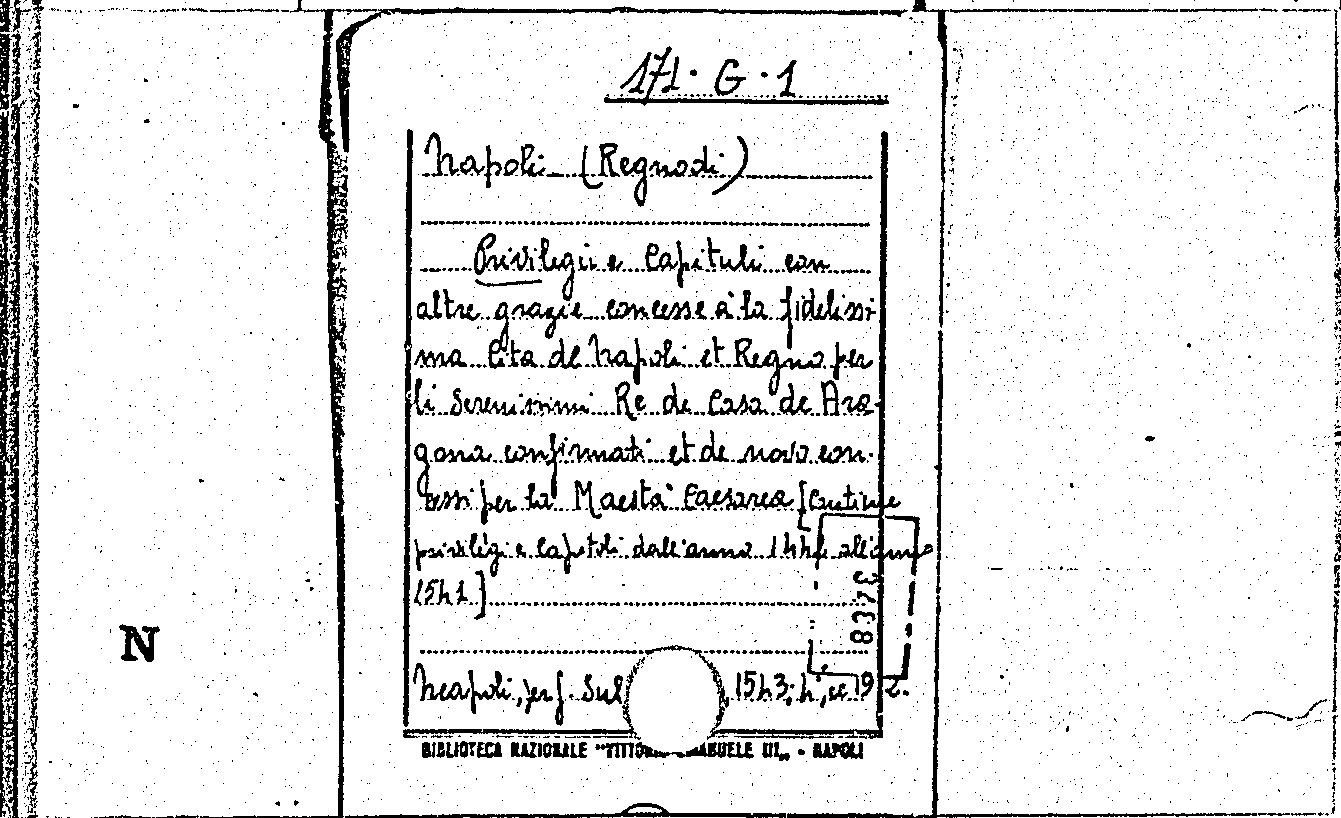 171. G. 1
Napoli (Regno di)
Privilegii e Capituli con
altre grazie concesse a la fidelissi-
ma Cita de Napoli et Regno per
li Serenissimi Re de Casa de Ara-
gona confirmati et de novo con-
cessi per la Maestà Caesarea [Contiene
privilegi e capitoli dall'anno all'anno
15h1]
8373
N
Neapoli, per J. Sul 15h3; h°, cc 19 2.
BIBLIOTECA NAZIONALE "VITTORIO EMANUELE III„ - NAPOLI